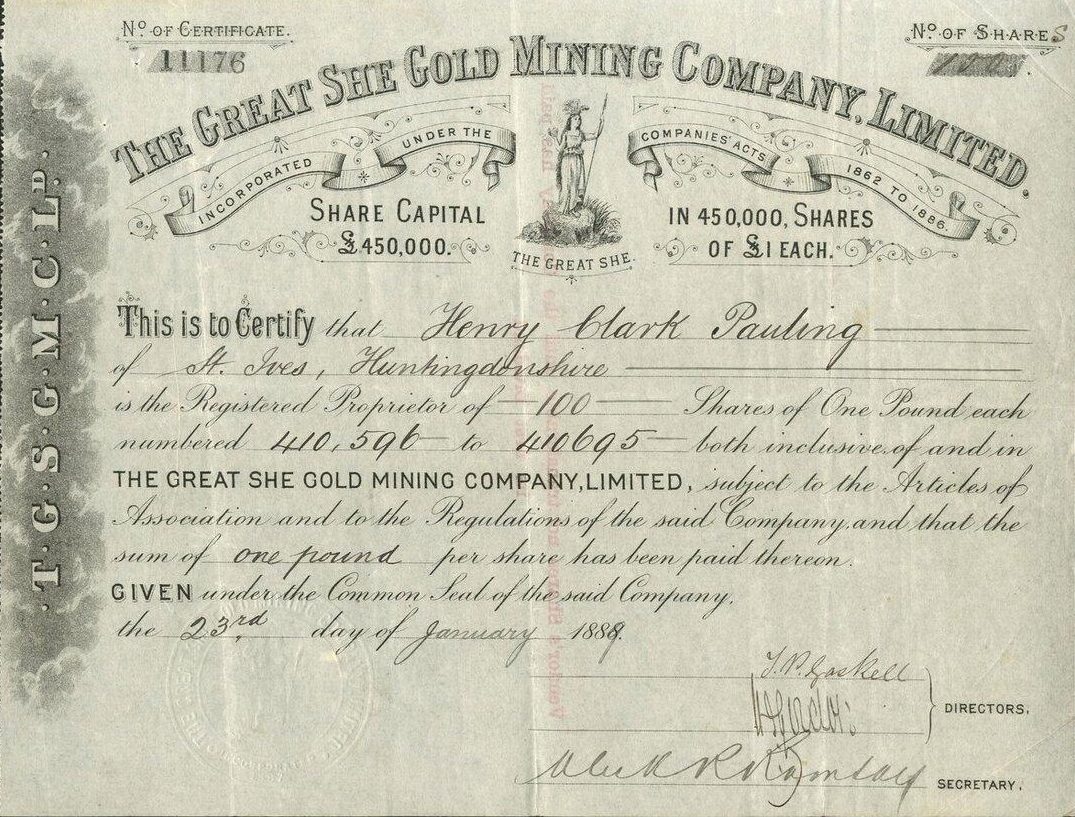 No. OF CERTIFICATE.
11176
No. OF SHARES
100
THE GREAT SHE GOLD MINING COMPANY, LIMITED.
INCORPORATED UNDER THE COMPANIES' ACTS 1862 TO 1886.
SHARE CAPITAL £450,000.
IN 450,000, SHARES OF £1 EACH.
THE GREAT SHE.
T.G.S.G.M.C.LD.
This is to Certify that Henry Clark Pauling
of St. Ives, Huntingdonshire
is the Registered Proprietor of 100 Shares of One Pound each
numbered 410,596 to 410695 both inclusive, of and in
THE GREAT SHE GOLD MINING COMPANY, LIMITED, subject to the Articles of
Association and to the Regulations of the said Company, and that the
sum of one pound per share has been paid thereon.
GIVEN under the Common Seal of the said Company,
the 23rd. day of January 1889.
DIRECTORS.
SECRETARY.